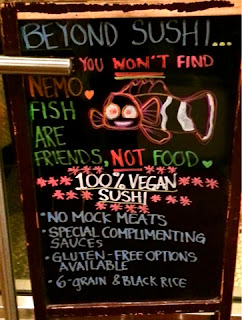 BEYOND SUSHI...
YOU WON'T FIND
NEMO.
FISH
ARE
FRIENDS, NOT FOOD
100% VEGAN
SUSHI
• NO MOCK MEATS
• SPECIAL COMPLIMENTING
SAUCES
• GLUTEN-FREE OPTIONS
AVAILABLE
• 6-GRAIN & BLACK RICE